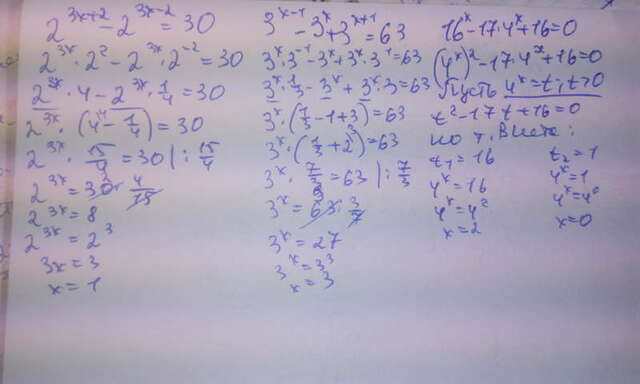 2^{3x+2} - 2^{3x-2} = 30
2^{3x} · 2^2 - 2^{3x} · 2^{-2} = 30
2^{3x} · 4 - 2^{3x} · 1/4 = 30
2^{3x} · (4 - 1/4) = 30
2^{3x} · 15/4 = 30 | : 15/4
2^{3x} = 30 · 4/15
2^{3x} = 8
2^{3x} = 2^3
3x = 3
x = 1
3^{x-1} - 3^x + 3^{x+1} = 63
3^x · 3^{-1} - 3^x + 3^x · 3^1 = 63
3^x · 1/3 - 3^x + 3^x · 3 = 63
3^x · (1/3 - 1 + 3) = 63
3^x · (1/3 + 2) = 63
3^x · 7/3 = 63 | : 7/3
3^x = 63 · 3/7
3^x = 27
3^x = 3^3
x = 3
16^x - 17 · 4^x + 16 = 0
(4^x)^2 - 17 · 4^x + 16 = 0
Пусть 4^x = t, t > 0
t^2 - 17t + 16 = 0
по т. Виета:
t_1 = 16 t_2 = 1
4^x = 16 4^x = 1
4^x = 4^2 4^x = 4^0
x = 2 x = 0